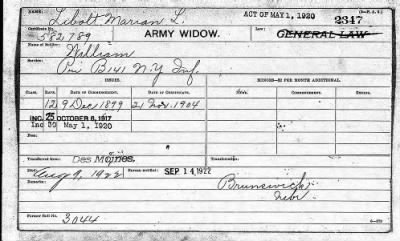 NAME: Libolt Marian L. ACT OF MAY 1, 1920 2347
Certificate No. 582789 ARMY WIDOW. Law: GENERAL LAW
Name of Soldier: William
Service: Pvt B 141 N.Y. Inf.
ISSUES. MINORS—$2 PER MONTH ADDITIONAL.
CLASS. RATE. DATE OF COMMENCEMENT. DATE OF CERTIFICATE. NAME. COMMENCEMENT.
12 9 Dec 1899 21 Nov. 1904
INC. 25 OCTOBER 6, 1917
Inc 30 May 1, 1920
Transferred from: Des Moines,
Died: Aug 9, 1922 Bureau notified: SEP 14 1922
Remarks: Brunswick,
Nebr
Former Roll No. 3044